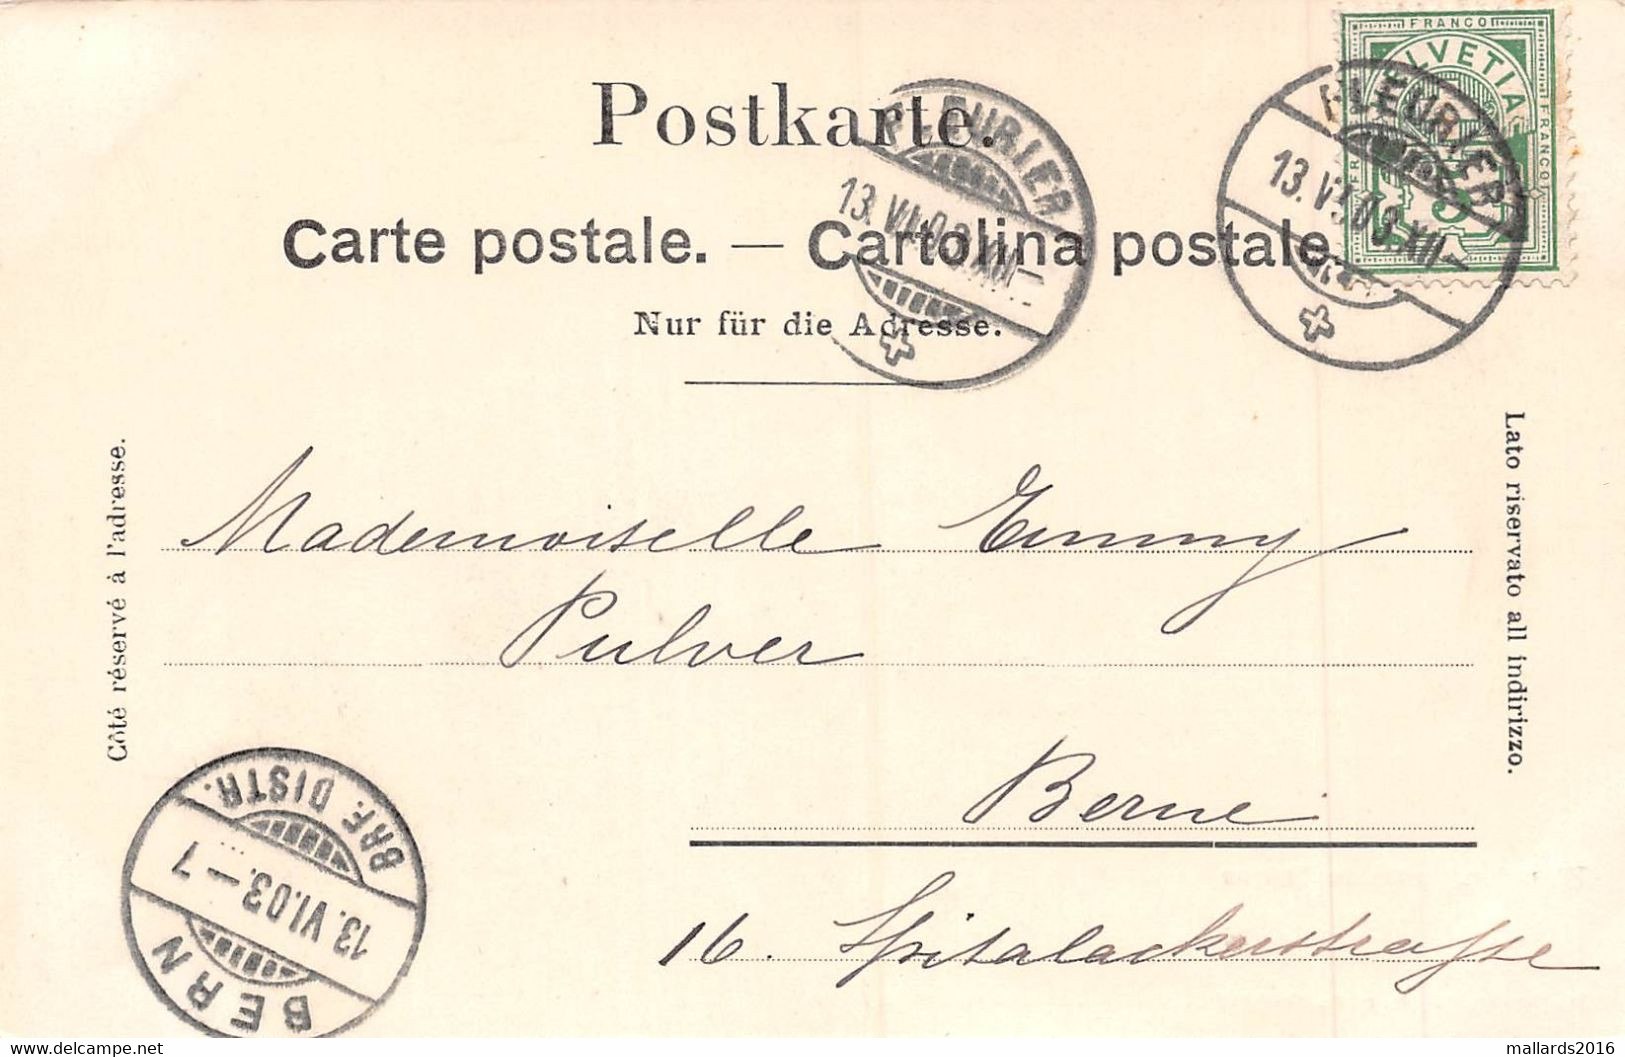 FRANCO
HELVETIA
FRANCO
5
Postkarte.
FLEURIER
13.VI.03.XII—
FLEURIER
13.VI.03.XII—
Carte postale. — Cartolina postale.
Nur für die Adresse.
Côté réservé à l'adresse.
Lato riservato all indirizzo.
Mademoiselle Emmy
Pulver
Berne
16. Spitalackerstrasse
BERN
13.VI.03.—7
BRF. DISTR.
https://www.delcampe.net
mallards2016